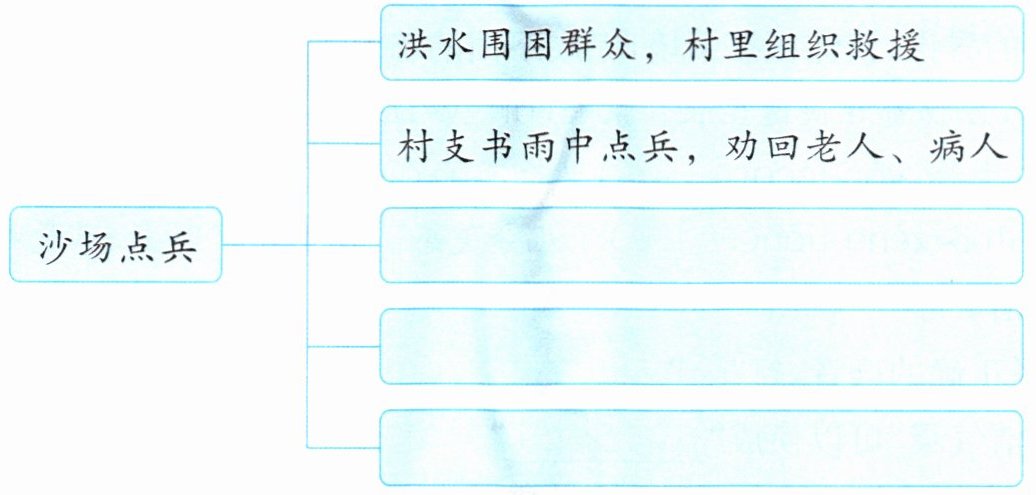 洪水围困群众，村里组织救援
村支书雨中点兵，劝回老人、病人
沙场点兵